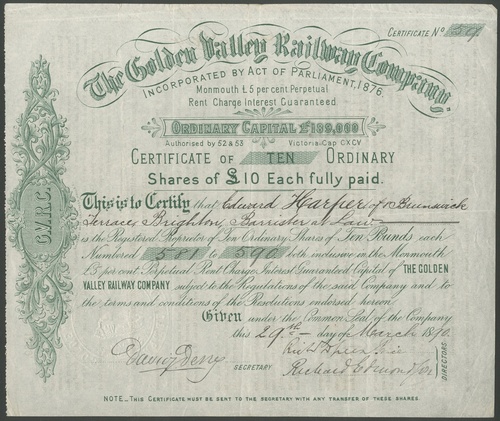 CERTIFICATE No 59
The Golden Valley Railway Company.
INCORPORATED BY ACT OF PARLIAMENT, 1876.
Monmouth £5 per cent Perpetual
Rent Charge Interest Guaranteed
ORDINARY CAPITAL £199,000
Authorised by 52 & 53 Victoria Cap CXCV
CERTIFICATE OF TEN ORDINARY
Shares of £10 Each fully paid.
This is to Certify that Edward Harper of Brunswick
Terrace, Brighton, Barrister at Law
is the Registered Proprietor of Ten Ordinary Shares of TEN POUNDS each
Numbered 581 to 590 both inclusive in the Monmouth
£5 per cent Perpetual Rent Charge Interest Guaranteed Capital of THE GOLDEN
VALLEY RAILWAY COMPANY subject to the Regulations of the said Company and to
the terms and conditions of the Resolutions endorsed hereon.
Given under the Common Seal of the Company
this 29th day of March 1890.
SECRETARY
Richard
DIRECTORS
NOTE.—THIS CERTIFICATE MUST BE SENT TO THE SECRETARY WITH ANY TRANSFER OF THESE SHARES.
G.V.R.C.